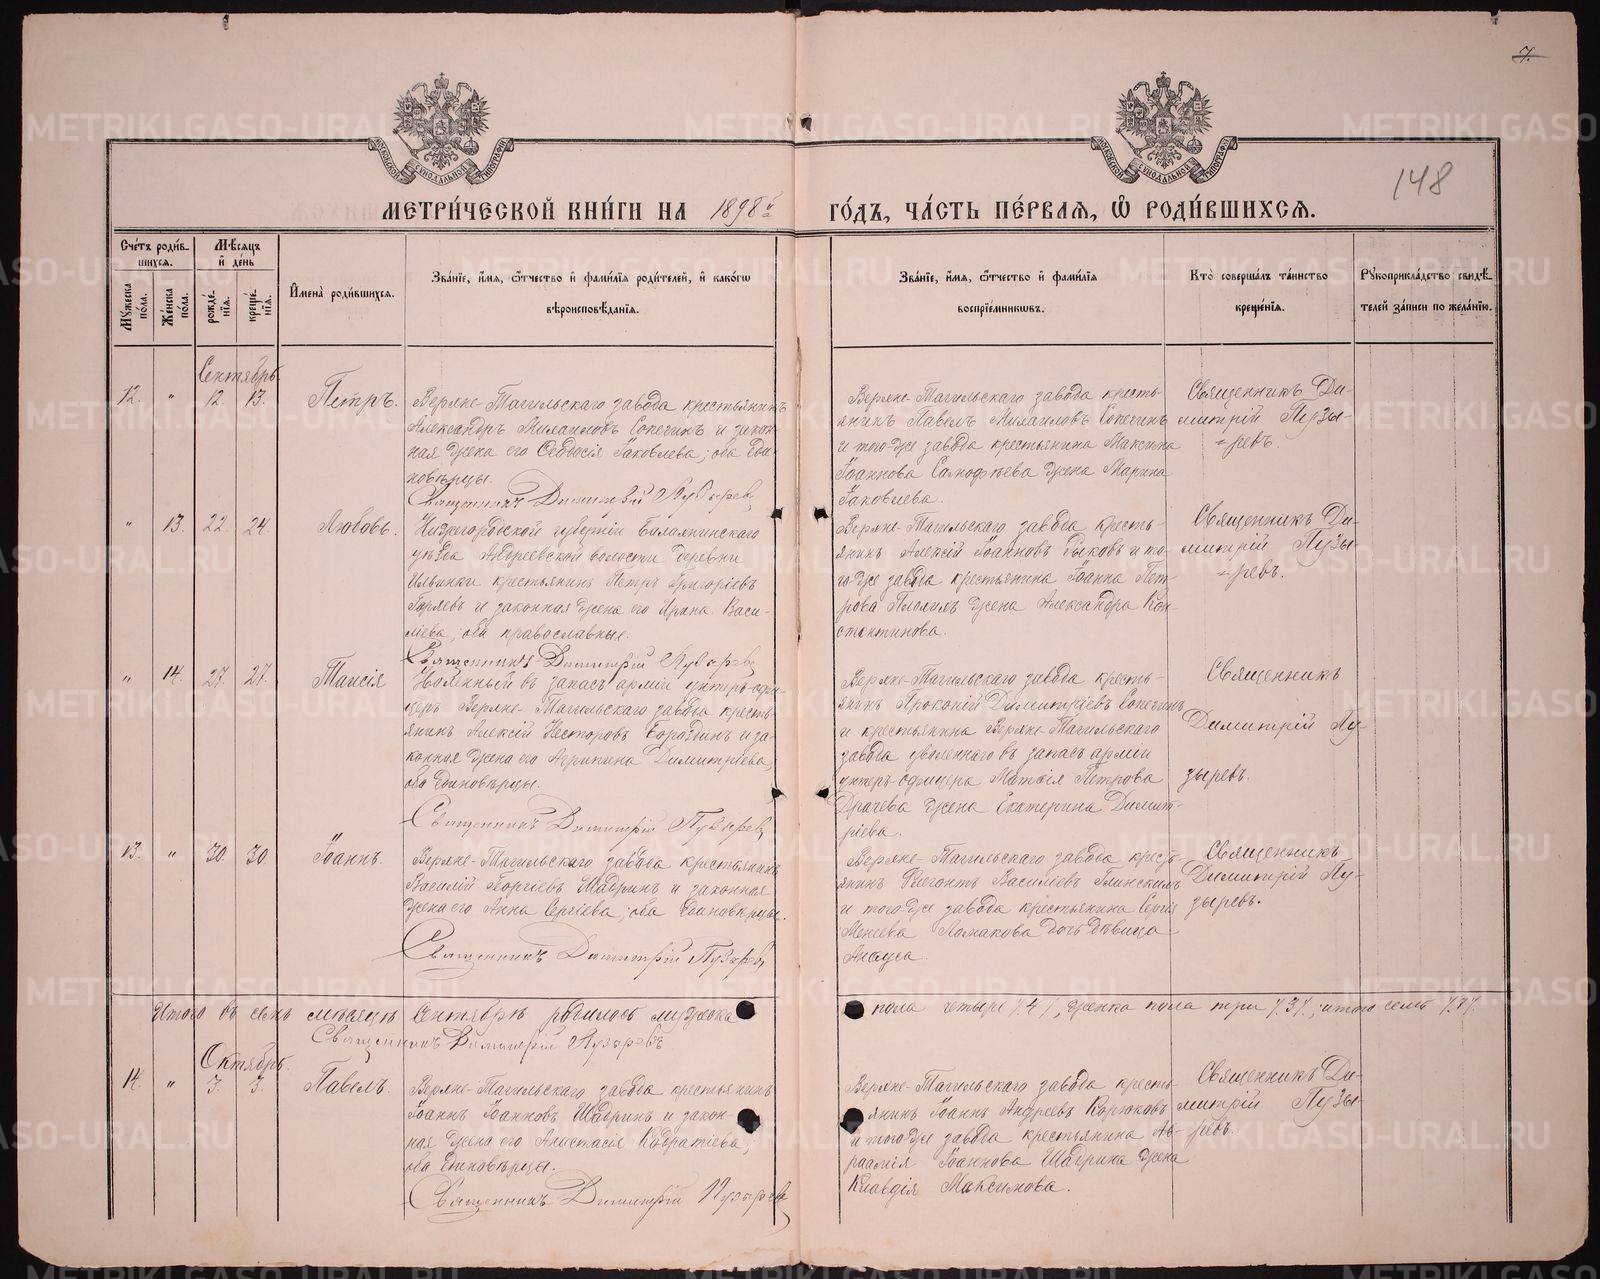 7.
148
МЕТРИ́ЧЕСКОЙ КНИ́ГИ НА 1898 й ГО́ДЪ, ЧА́СТЬ ПЕ́РВАЯ, Ѡ РОДИ́ВШИХСЯ.
Сче́тъ роди́в-
шихся.
Му́жеска
пола.
Же́нска
по́ла.
Мѣ́сяцъ
и҆ де́нь
рожде́-
нїѧ.
креще́-
нїѧ.
И҆мена̀ роди́вшихся.
Зва́нїе, и҆́мѧ, ѻ҆́тчество и҆ фами́лїѧ роди́телей, и҆ како́гѡ
вѣроисповѣ́данїѧ.
Зва́нїе, и҆́мѧ, ѻ҆́тчество и҆ фами́лїѧ
воспрїе́мникѡвъ.
Кто̀ соверша́лъ та́инство
креще́нїѧ.
Рꙋкоприкла́дство свидѣ́-
телей за́писи по жела́нїю.
Сентябрь.
12. " 12. 13.
Петръ.
Верхне-Тагильскаго завода крестьянинъ
Александръ Михаиловъ Сопегинъ и закон-
ная жена его Феодосія Іаковлева; оба еди-
новѣрцы.
Священникъ Димитрій Пузырев
Верхне-Тагильскаго завода кресть-
янинъ Павелъ Михаиловъ Сопегинъ
и того-же завода крестьянина Максима
Іоаннова жена Марина
Іаковлева.
Священникъ Ди-
митрій Пузы-
=ревъ.
" 13. 22. 24.
Любовь.
Нижегородской губерніи
уѣзда Андреевской волости деревни
Ильинки крестьянинъ Петръ Григоріевъ
и законная жена его Ирина Васи-
ліева; оба православные.
Священникъ Димитрій Пузырев
Верхне-Тагильскаго завода кресть-
янинъ Алексій Іоанновъ Рыковъ и то-
го-же завода крестьянина Іоанна Пет-
рова жена Александра Кон-
стантинова.
Священникъ Ди-
митрій Пузы-
=ревъ.
" 14. 27. 27.
Таисія
Уволенный въ запасъ арміи унтеръ-офи-
церъ Верхне-Тагильскаго завода кресть-
янинъ Алексій Несторовъ Бороздинъ и за-
конная жена его Агрипина Димитріева,
оба единовѣрцы.
Священникъ Димитрій Пузырев
Верхне-Тагильскаго завода кресть-
янинъ Прокопій Димитріевъ Сопегинъ
и крестьянина Верхне-Тагильскаго
завода уволеннаго въ запасъ арміи
унтеръ-офицера Матѳія Петрова
Драчева жена Екатерина Димит-
ріева.
Священникъ
Димитрій Пу-
зыревъ.
13. " 30. 30
Іоаннъ.
Верхне-Тагильскаго завода крестьянинъ
Василій Георгіевъ Шадринъ и законная
жена его Анна Сергіева; оба единовѣрцы.
Священникъ Димитрій Пузырев
Верхне-Тагильскаго завода кресть-
янинъ Флегонтъ Василіевъ Глинскихъ
и того-же завода крестьянина Сергія
Ломакова дочь дѣвица
Священникъ
Димитрій Пу-
зыревъ.
Итого въ семъ мѣсяцѣ Сентябрѣ родилось мужеска пола четыре /4/, женска пола три /3/; итого семь /7/.
Священникъ Димитрій Пузыревъ
Октябрь.
14. " 3. 3.
Павелъ.
Верхне-Тагильскаго завода крестьянинъ
Іоаннъ Іоанновъ Шадринъ и закон-
ная жена его Анастасія Кодратіева;
оба единовѣрцы.
Священникъ Димитрій Пузырев
Верхне-Тагильскаго завода кресть-
янинъ Іоаннъ Андреевъ Корюковъ
и того-же завода крестьянина Ав-
раамія Іоаннова Шадрина жена
Клавдія Максимова.
Священникъ Ди-
митрій Пузы-
ревъ.
METRIKI.GASO-URAL.RU